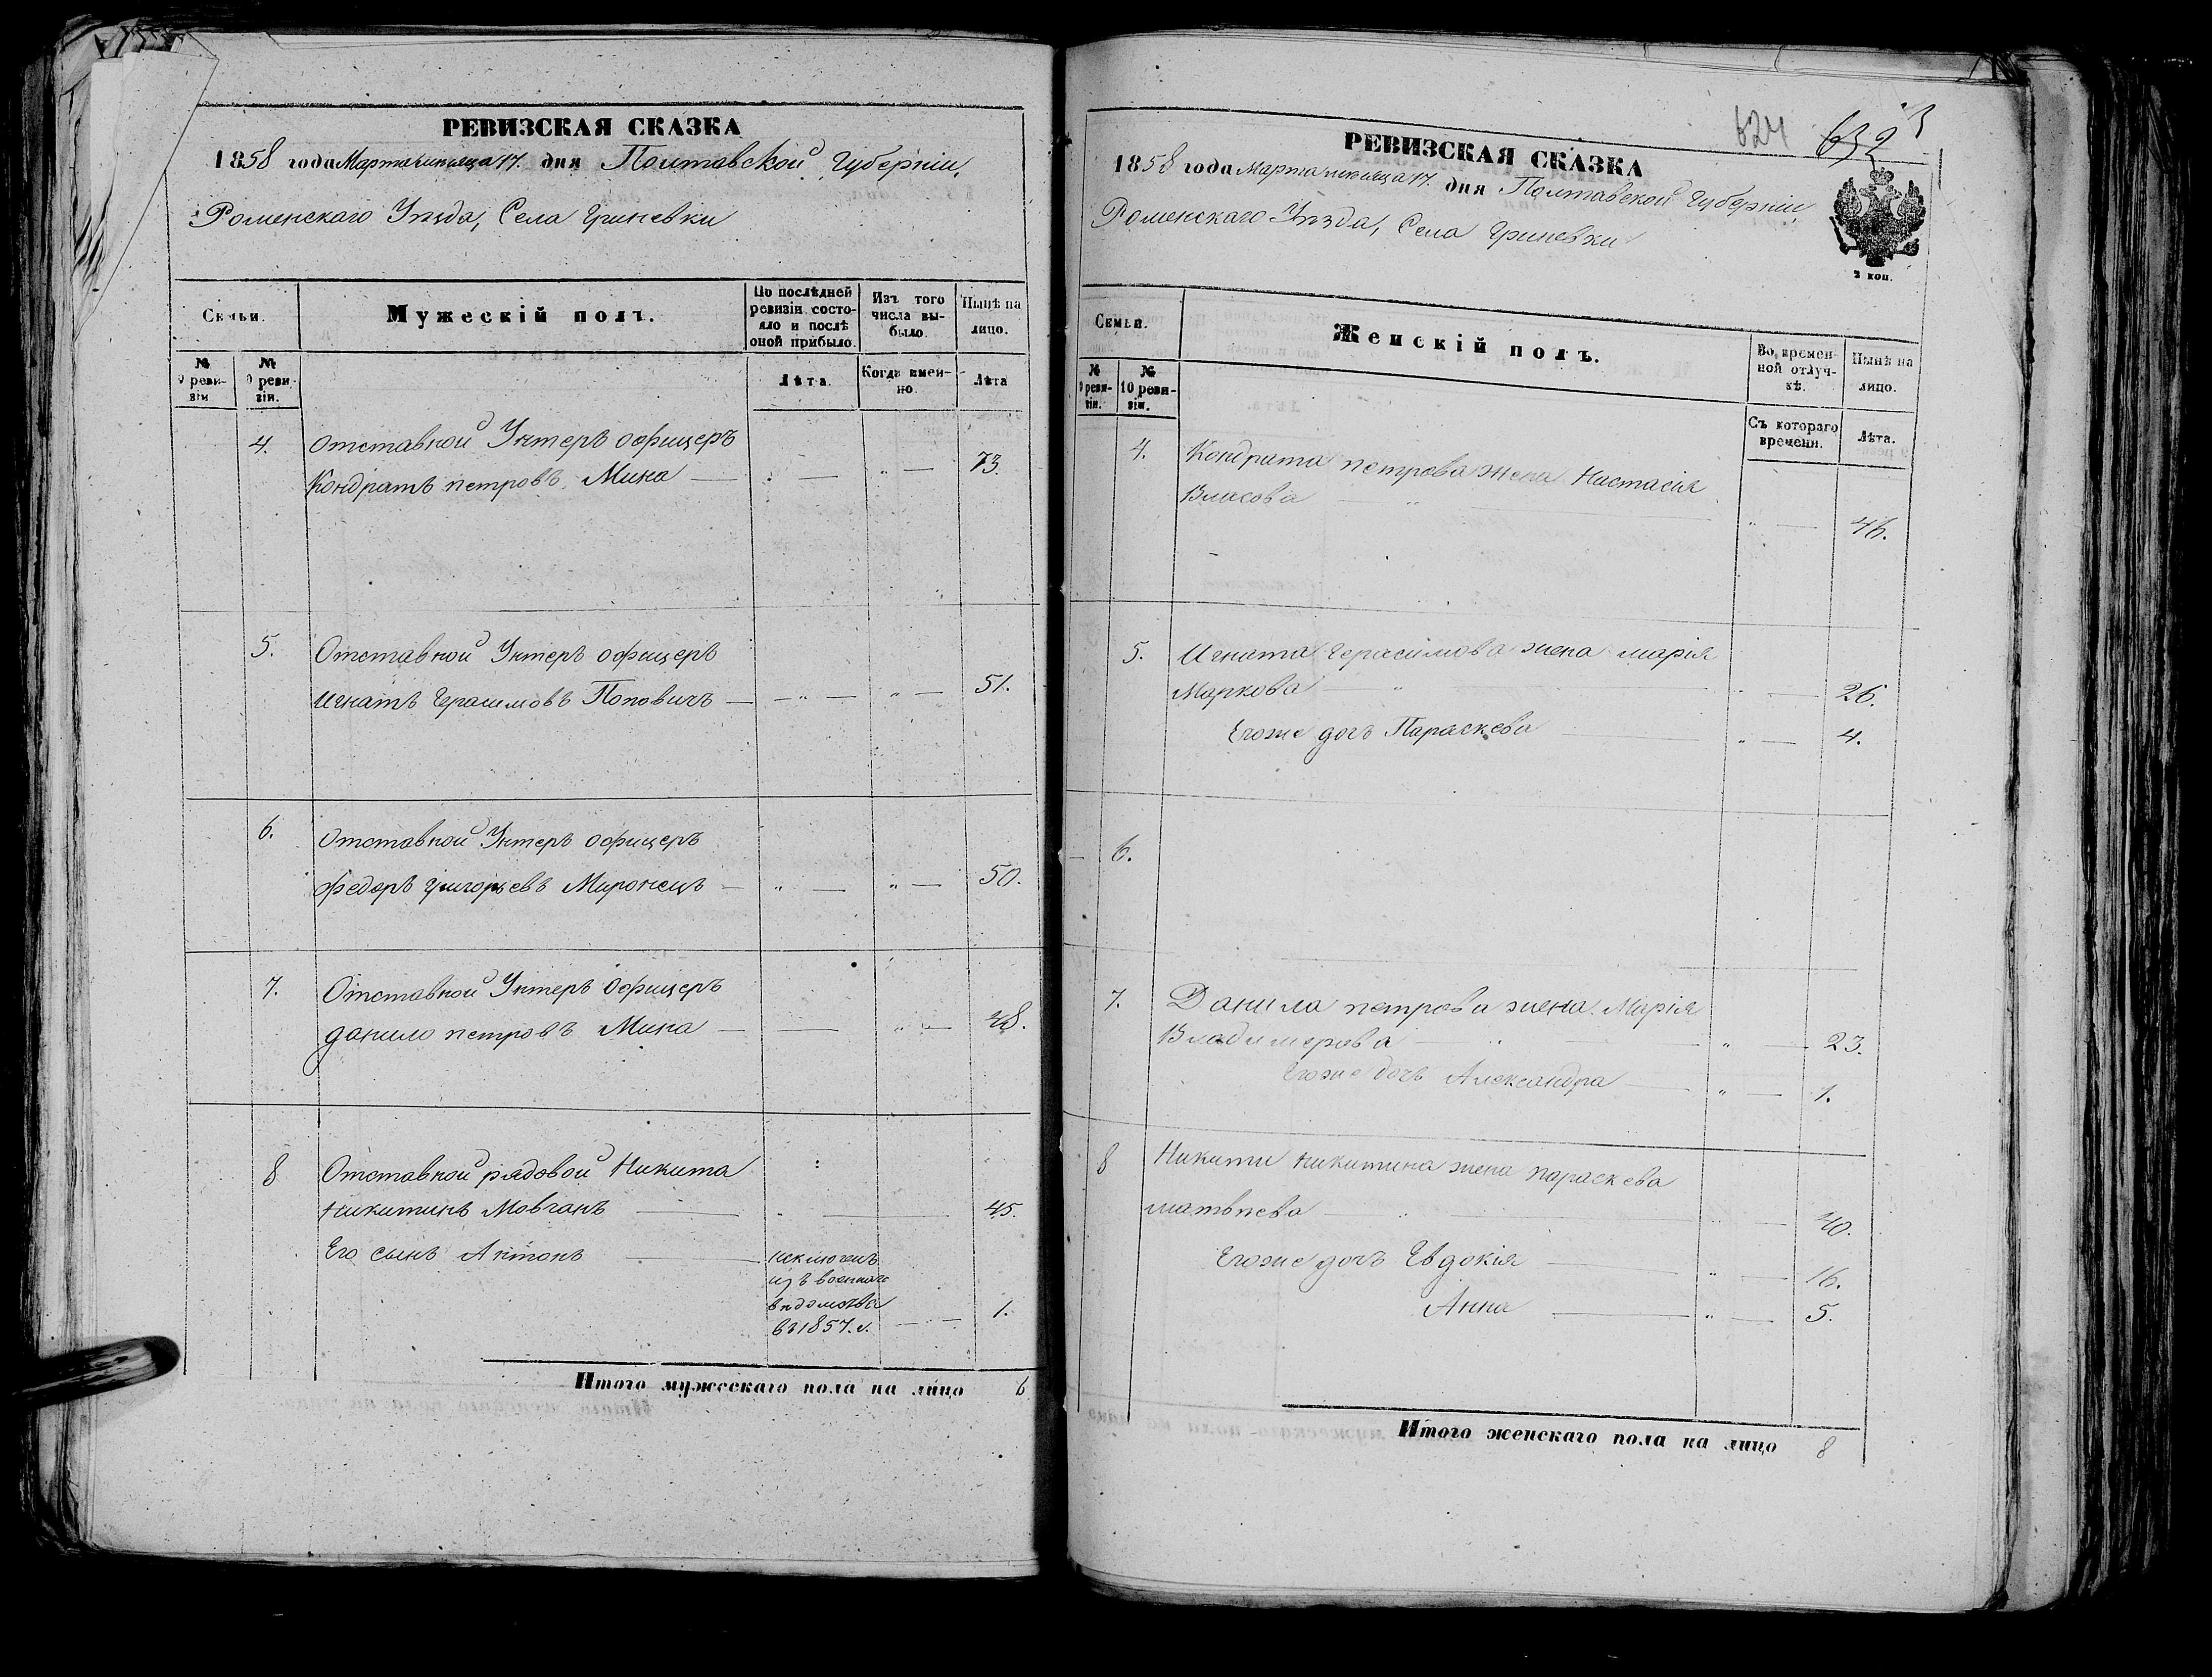 РЕВИЗСКАЯ СКАЗКА
1858 года Марта месяца 17. дня Полтавской Губерніи,
Роменскаго Уѣзда, Села Гриневки
Семьи.
Мужескій полъ.
По послѣдней ревизіи состояло и послѣ оной прибыло.
Изъ того числа выбыло.
Нынѣ на лицо.
№ 9 ревизіи
№ 10 ревизіи.
Лѣта.
Когда именно.
Лѣта
4. Отставной Унтеръ офицеръ
Кондратъ петровъ Мина — " — " — 73.
5. Отставной Унтеръ офицеръ
Игнатъ Герасимовъ Поповичъ — " — " — 51.
6. Отставной Унтеръ офицеръ
Федоръ Григорьевъ Миронецъ — " — " — 50.
7. Отставной Унтеръ Офицеръ
Данило петровъ Мина — — " — 48.
8 Отставной рядовой Никита
Никитинъ Мовчанъ — " — 45.
Его сынъ Антонъ — исключенъ
изъ военнаго
вѣдомства
въ 1857. г. — 1.
Итого мужескаго пола на лицо 6
624 632
РЕВИЗСКАЯ СКАЗКА
1858 года Марта месяца 17. дня Полтавской Губерніи
Роменскаго Уѣзда, Села Гриневки
2 коп.
Семьи.
Женскій полъ.
Во временной отлучкѣ.
Нынѣ на лицо.
№ 9 ревизіи.
№ 10 ревизіи.
Съ котораго времени.
Лѣта.
4. Кондрата петрова жена Настасія
Власова — " — " — 46.
5. Игната Герасимова жена марія
Маркова — " — " — 26.
Егоже дочь Параскева — " — 4.
6.
7. Данила петрова жена Марія
Владимерова — " — " — 23.
Егоже дочь Александра — " — 1.
8 Никиты Никитина жена параскева
матвѣева — " — " — 40.
Егоже дочь Евдокія — " — 16.
Анна — " — 5.
Итого женскаго пола на лицо 8